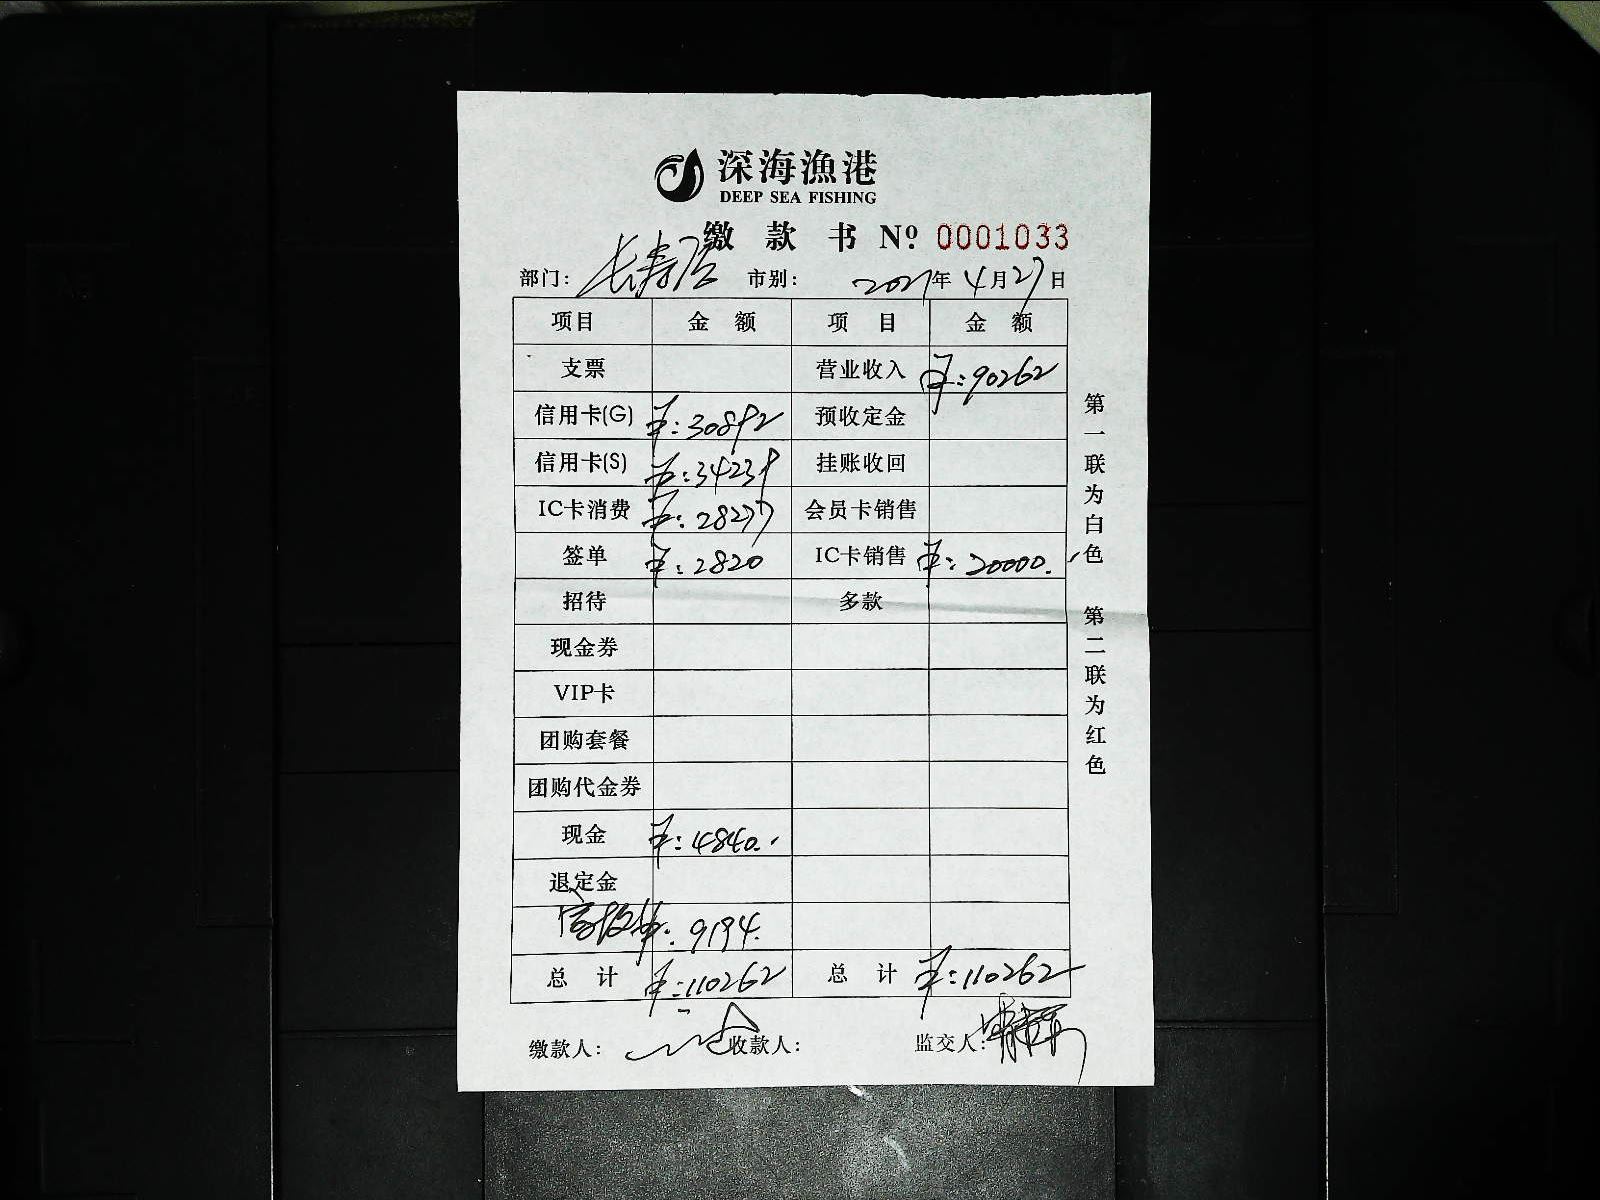 深海漁港
DEEP SEA FISHING
缴款书 Nº 0001033
部门: 长寿店 市别: 2021年4月27日
项目 金额 项目 金额
支票 营业收入 ¥:90262
信用卡(G) ¥:30892 预收定金
信用卡(S) ¥:34239 挂账收回
IC卡消费 ¥:28277 会员卡销售
签单 ¥:2820 IC卡销售 ¥:20000.
招待 多款
现金券
VIP卡
团购套餐
团购代金券
现金 ¥:4840.
退定金
¥:9194.
总计 ¥:110262 总计 ¥:110262
缴款人: 收款人: 监交人:
第一联为白色 第二联为红色